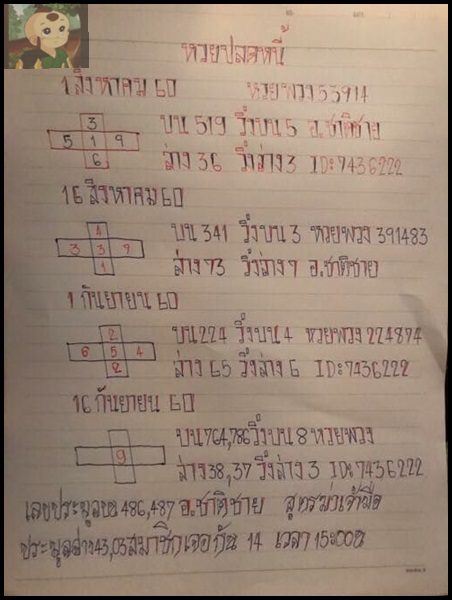 หวยปลดหนี้
1 สิงหาคม 60 หวยพวง 53914
3
5 1 9
6
บน 519 วิ่งบน 5 อ.ชาติชาย
ล่าง 36 วิ่งล่าง 3 ID:7436222
16 สิงหาคม 60
4
3 3 9
1
บน 341 วิ่งบน 3 หวยพวง 391483
ล่าง 73 วิ่งล่าง 7 อ.ชาติชาย
1 กันยายน 60
2
6 5 4
2
บน 224 วิ่งบน 4 หวยพวง 224874
ล่าง 65 วิ่งล่าง 6 ID:7436222
16 กันยายน 60
9
บน 764,786 วิ่งบน 8 หวยพวง
ล่าง 38,37 วิ่งล่าง 3 ID:7436222
เลขประมูลบน 486,487 อ.ชาติชาย สูตรฆ่าเจ้ามือ
ประมูลล่าง 43,03 สมาชิกเจอกัน 14 เวลา 15:00น